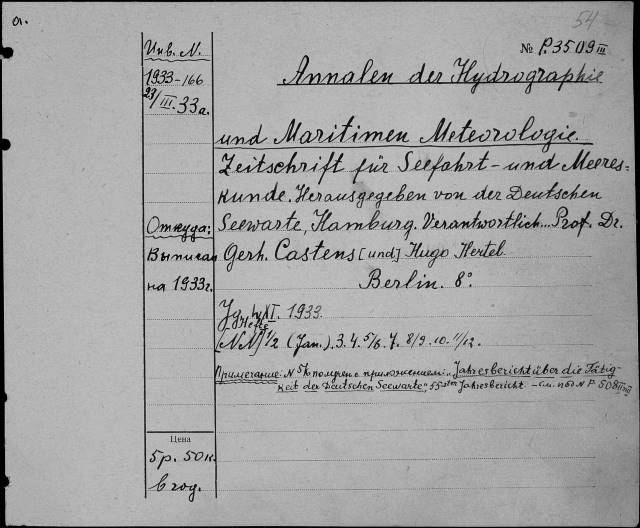 a.
54
№ P.3509 III
Инв. N.
1933-166
23/III.33 г.
Annalen der Hydrographie
und Maritimen Meteorologie.
Zeitschrift für Seefahrt- und Meeres-
kunde. Herausgegeben von der Deutschen
Откуда: Seewarte, Hamburg. Verantwortlich... Prof. Dr.
Выписан Gerh. Castens [und] Hugo Hertel.
на 1933 г. Berlin. 8°.
Jg. LXI. 1933.
Hefte
[NN] 1/2 (Jan.). 3. 4. 5/6. 7. 8/9. 10. 11/12.
Примечание: N 5/6 с приложением: "Jahresbericht über die Tätig-
keit der Deutschen Seewarte", 55-ster Jahresbericht - см. под N P 508
Цена
5р. 50к.
в год.